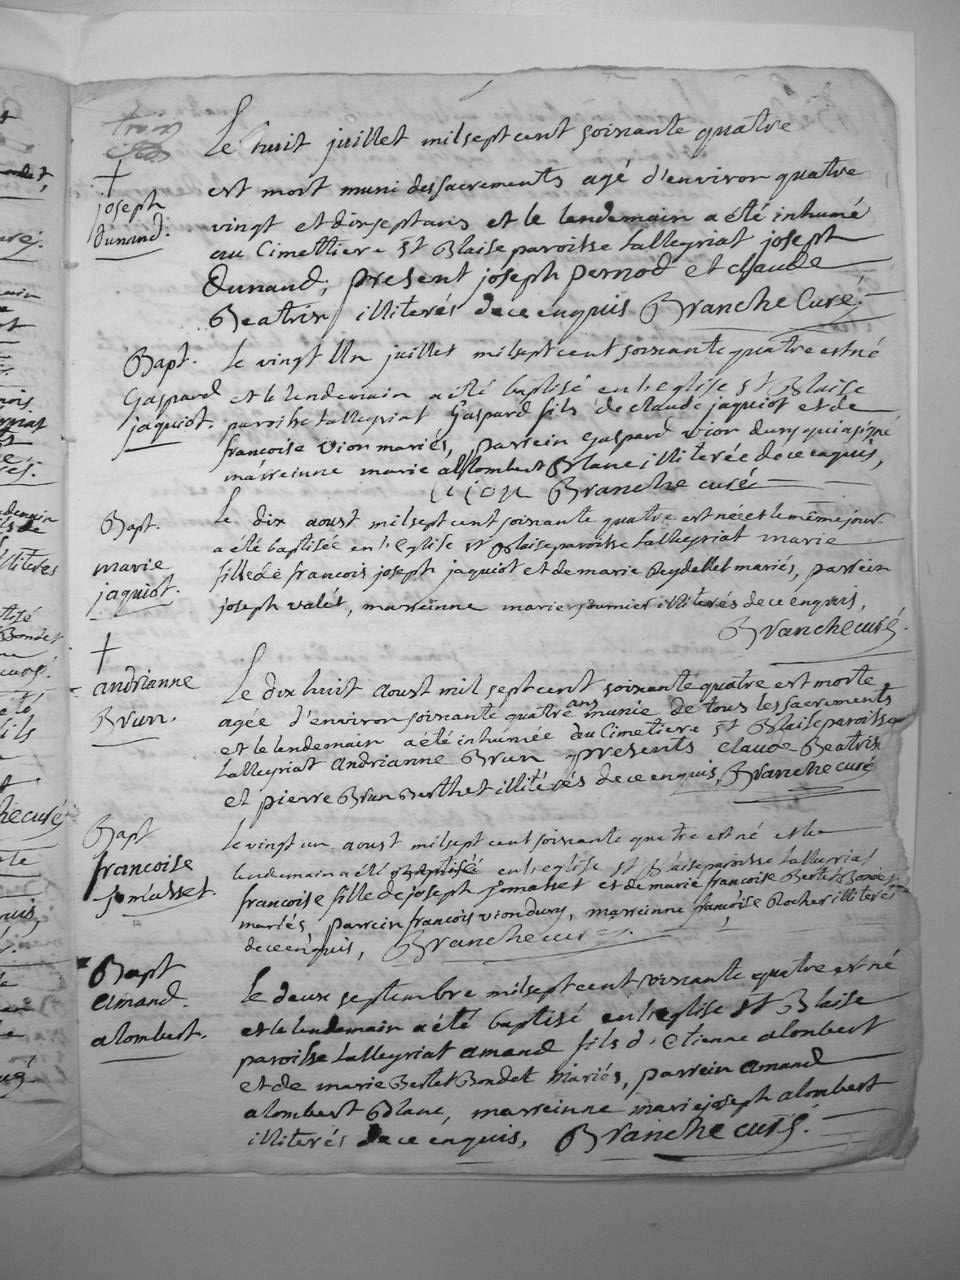 Le huit juillet mil sept cent soixante quatre
†
joseph
dunand.
est mort muni des sacrements agé d'environ quatre
vingt et dix sept ans et le lendemain a été inhumé
au Cimettiere St Blaise paroisse tallegriat joseph
Dunand, present joseph pernod et claude
Beatrix illiterés de ce enquis Branche Curé.
Bapt.
Gaspard
jaquiot.
Le vingt Un juillet mil sept cent soixante quatre est né
et le lendemain a été baptisé en l'eglise st Blaise
paroisse tallegriat Gaspard fils de claude jaquiot et de
francoise vion mariés, parrein Gaspard vion dury qui a signé
marreinne marie alombert Blanc illiterée de ce enquis,
vion Branche curé
Bapt.
marie
jaquiot.
Le dix aoust mil sept cent soixante quatre est née et le même jour
a été baptisée en l'eglise st Blaise paroisse tallegriat marie
fille de francois joseph jaquiot et de marie Reydellet mariés, parrein
joseph valet, marreinne marie fournier illiterés de ce enquis,
Branche curé.
†
andrianne
Brun.
Le dix huit aoust mil sept cent soixante quatre est morte
agée d'environ soixante quatre ans munie de tous les sacrements
et le lendemain a été inhumée au Cimetiere St Blaise paroisse
tallegriat andrianne Brun presents claude Beatrix
et pierre Brun Berthet illitérés de ce enquis, Branche curé
Bapt
francoise
jomasset.
Le vingt un aoust mil sept cent soixante quatre est né et le
lendemain a été baptisé en l'eglise st Blaise paroisse tallegriat
francoise fille de joseph jomasset et de marie francoise Bertet Bondet
mariés, parrein francois vion dury, marreinne francoise Rochet illiterés
de ce enquis, Branche curé.
Bapt
amand.
alombert.
Le deux septembre mil sept cent soixante quatre est né
et le lendemain a été baptisé en l'eglise st Blaise
paroisse tallegriat amand fils d'Etienne alombert
et de marie Bertet Bondet mariés, parrein amand
alombert Blanc, marreinne marie joseph alombert
illiterés de ce enquis, Branche curé.